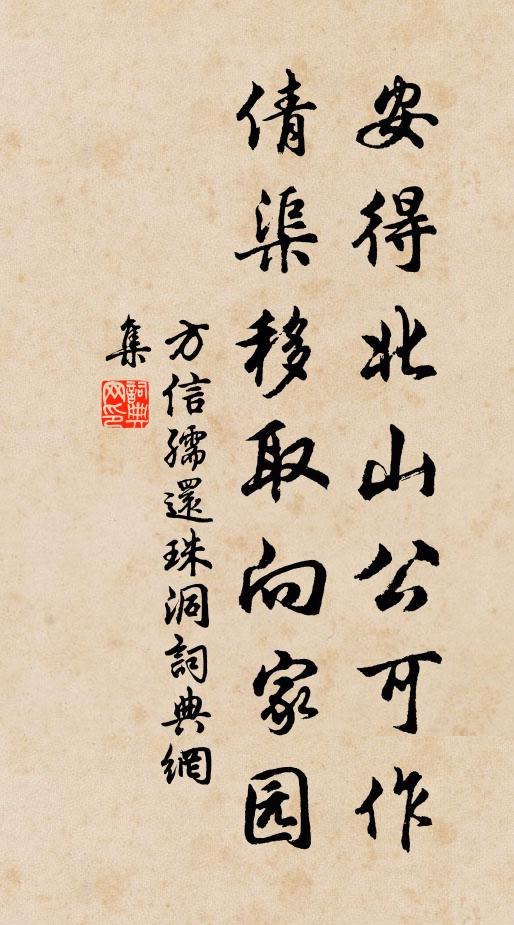 安得北山公可作
倩渠移取向家园
方信孺還珠洞詞典網
集
詞典
网印